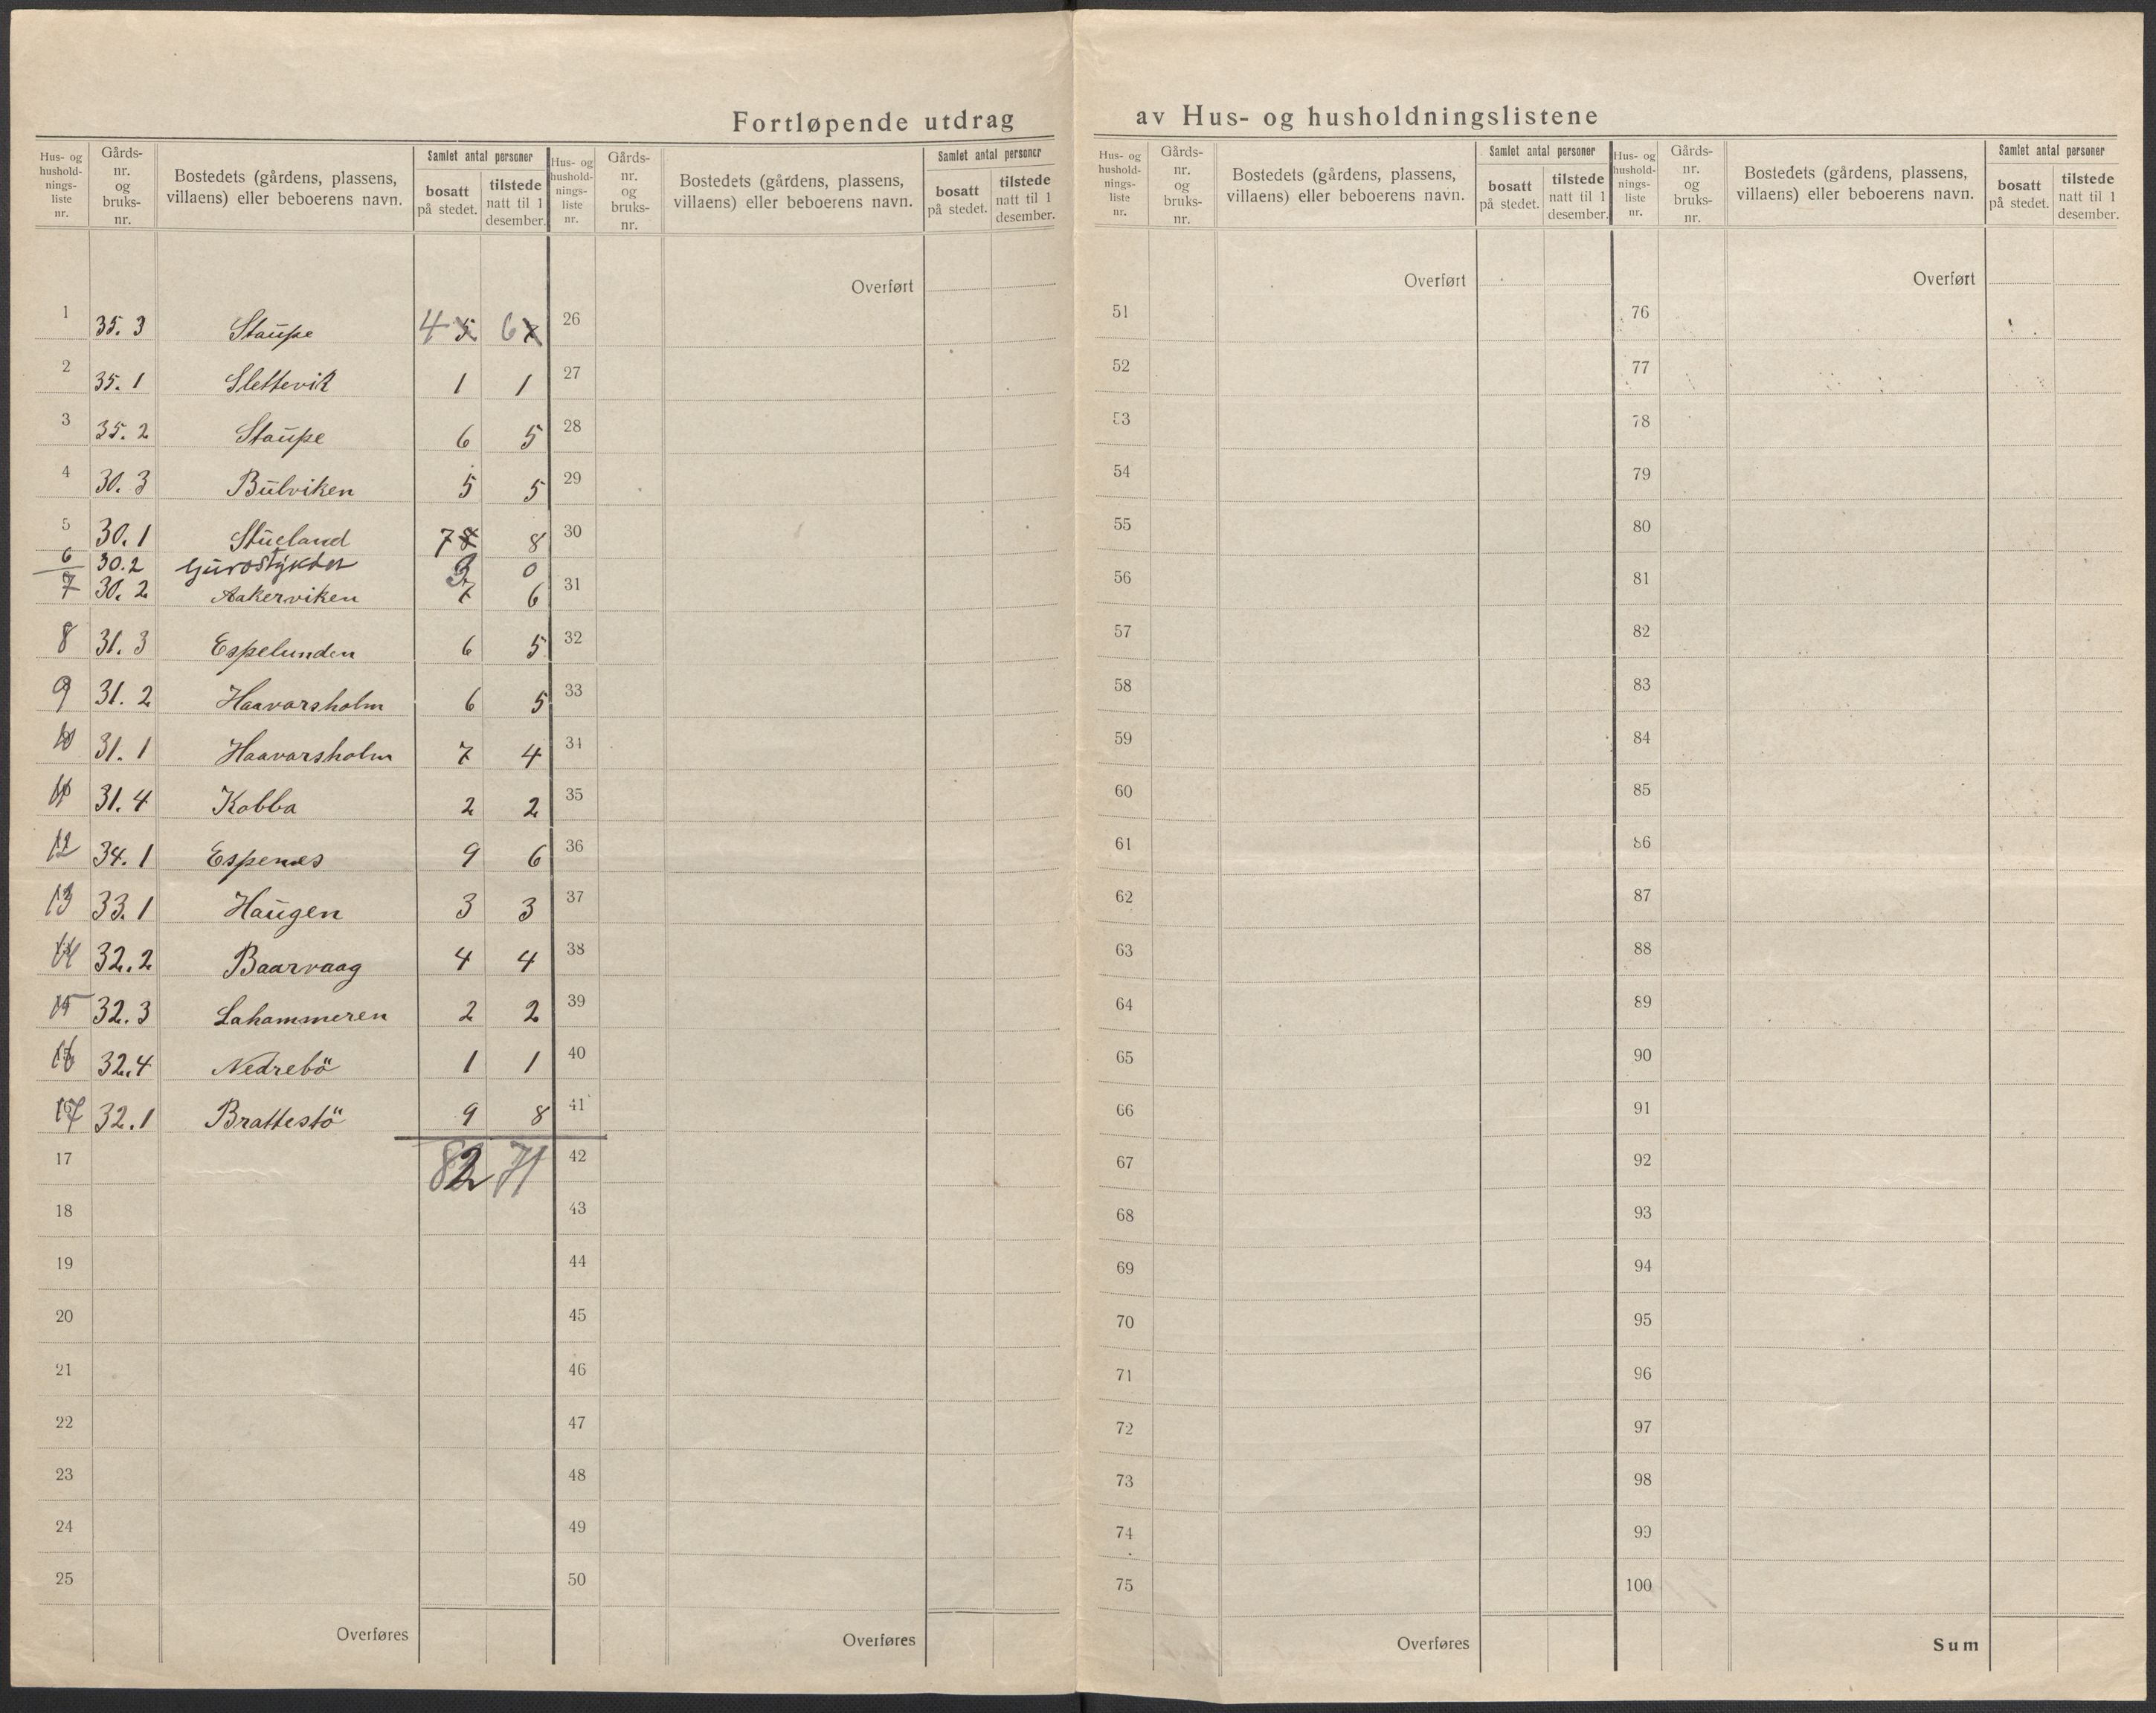 Fortløpende utdrag av Hus- og husholdningslistene
Hus- og hushold-nings-liste nr. Gårds-nr. og bruks-nr. Bostedets (gårdens, plassens, villaens) eller beboerens navn. Samlet antal personer bosatt på stedet. tilstede natt til 1 desember.
1 35.3 Staupe 4 5 6 7
2 35.1 Slettevik 1 1
3 35.2 Staupe 6 5
4 30.3 Bulviken 5 5
5 30.1 Stueland 7 8 8
6 30.2 Gurostykket 3 0
7 30.2 Aakerviken 7 6
8 31.3 Espelunden 6 5
9 31.2 Haavarsholm 6 5
10 31.1 Haavarsholm 7 4
11 31.4 Kobba 2 2
12 34.1 Espenes 9 6
13 33.1 Haugen 3 3
14 32.2 Baarvaag 4 4
15 32.3 Lahammeren 2 2
16 32.4 Nedrebö 1 1
17 32.1 Brattestö 9 8
17 82 71
18
19
20
21
22
23
24
25
Overføres
Hus- og hushold-nings-liste nr. Gårds-nr. og bruks-nr. Bostedets (gårdens, plassens, villaens) eller beboerens navn. Samlet antal personer bosatt på stedet. tilstede natt til 1 desember.
Overført
26
27
28
29
30
31
32
33
34
35
36
37
38
39
40
41
42
43
44
45
46
47
48
49
50
Overføres
Hus- og hushold-nings-liste nr. Gårds-nr. og bruks-nr. Bostedets (gårdens, plassens, villaens) eller beboerens navn. Samlet antal personer bosatt på stedet. tilstede natt til 1 desember.
Overført
51
52
53
54
55
56
57
58
59
60
61
62
63
64
65
66
67
68
69
70
71
72
73
74
75
Overføres
Hus- og hushold-nings-liste nr. Gårds-nr. og bruks-nr. Bostedets (gårdens, plassens, villaens) eller beboerens navn. Samlet antal personer bosatt på stedet. tilstede natt til 1 desember.
Overført
76
77
78
79
80
81
82
83
84
85
86
87
88
89
90
91
92
93
94
95
96
97
98
99
100
Sum